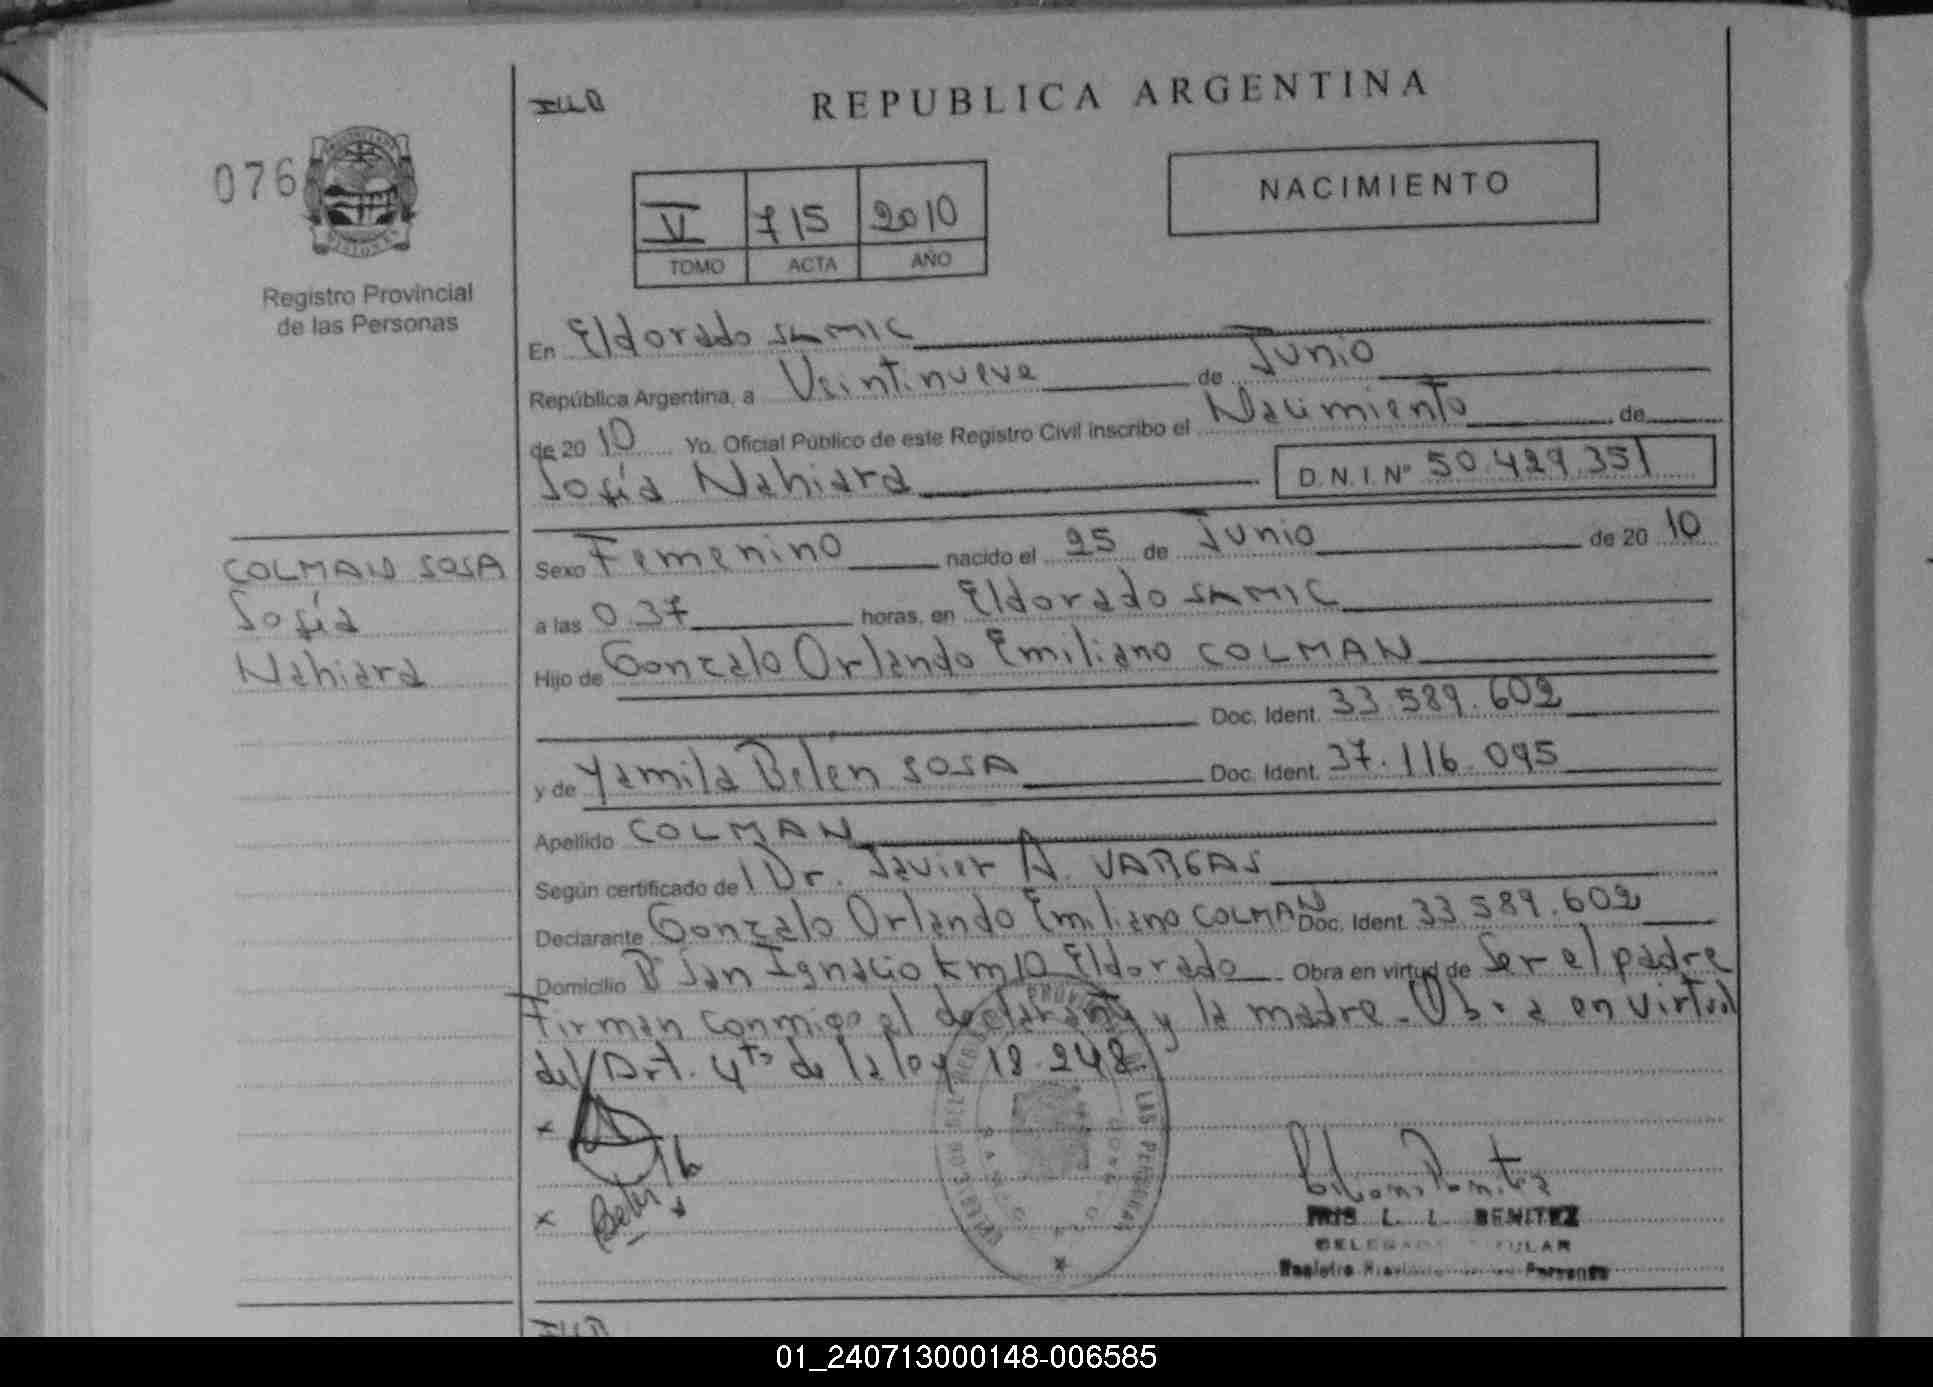 REPUBLICA ARGENTINA
076
NACIMIENTO
V 715 2010
TOMO ACTA AÑO
Registro Provincial
de las Personas
En Eldorado SAMIC
República Argentina, a Veintinueve de Junio
de 20 10 Yo, Oficial Público de este Registro Civil inscribo el Nacimiento de
Sofía Nahiara D.N.I. Nº 50.429.351
COLMAN SOSA
Sofía
Nahiara
Sexo Femenino nacido el 25 de Junio de 20 10
a las 0.37 horas, en Eldorado SAMIC
Hijo de Gonzalo Orlando Emiliano COLMAN
Doc. Ident. 33.589.602
y de Yamila Belén SOSA Doc. Ident. 37.116.095
Apellido COLMAN
Según certificado del Dr. Javier A. VARGAS
Declarante Gonzalo Orlando Emiliano COLMAN Doc. Ident. 33.589.602
Domicilio Bº San Ignacio Km 10 Eldorado Obra en virtud de Ser el padre
Firman conmigo el declarante y la madre. Obra en virtud
del Art. 4to de la ley 18.248.
x
x Belén
IRIS L. L. BENITEZ
01_240713000148-006585